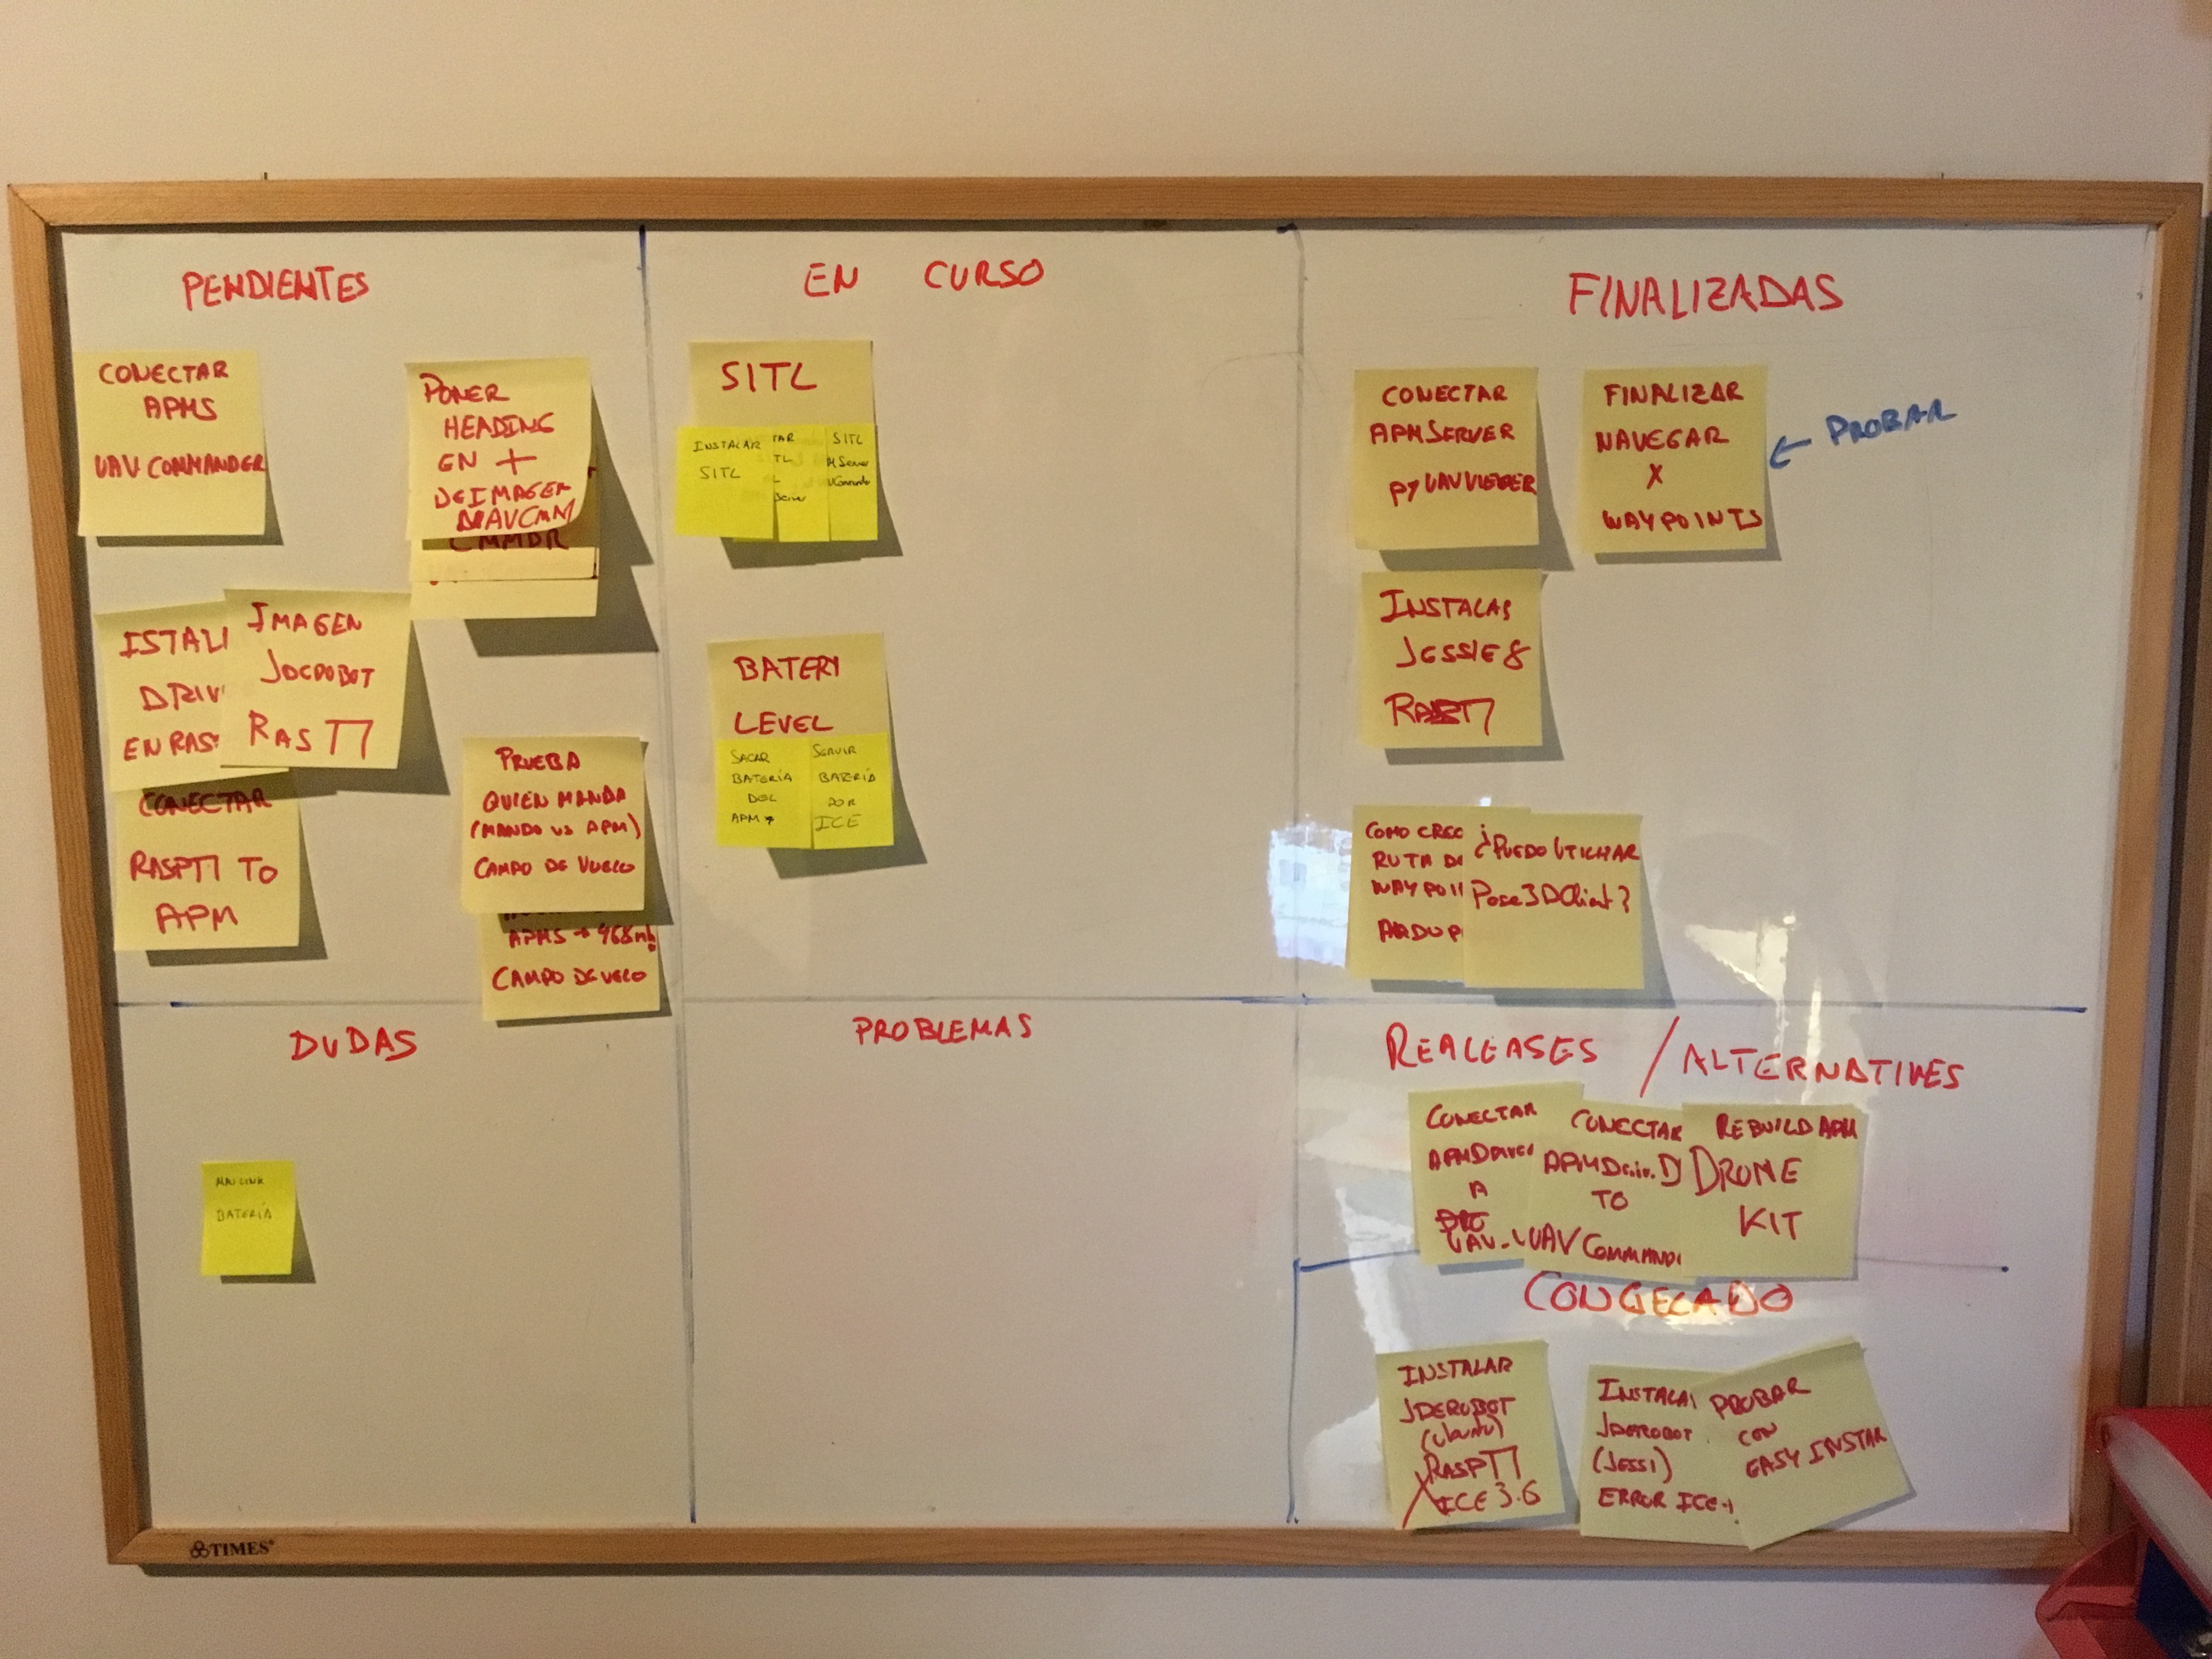 PENDIENTES
CONECTAR
APMS
UAV COMMANDER
PONER
HEADING
EN +
DE IMAGEN
CMMDR
ISTALI
DRIV
EN RAS
IMAGEN
RASPI
CONECTAR
RASPI TO
APM
PRUEBA
QUIEN MANDA
(MANDO VS APM)
CAMPO DE VUELO
APMS →
CAMPO DE VUELO
EN CURSO
SITL
INSTALAR
SITL
TAR
TL
L
SITL
BATERY
LEVEL
SACAR
BATERÍA
DEL
APM
SERVIR
BATERÍA
POR
ICE
FINALIZADAS
CONECTAR
APMSERVER
PY UAVVIEWER
FINALIZAR
NAVEGAR
X
WAYPOINTS
← PROBAR
INSTALAR
JESSIE 8
RASPI
COMO CREO
RUTA DE
WAYPOI
ARDUP
¿PUEDO UTILIZAR
Pose3DClient?
DUDAS
MAVLINK
BATERÍA
PROBLEMAS
REALEASES / ALTERNATIVES
CONECTAR
A
UAV
CONECTAR
TO
UAV COMMAND
REBUILD APM
DRONE
KIT
CONGELADO
INSTALAR
JDEROBOT
(Ubuntu)
RASPI
ICE 3.6
INSTALA
JDEROBOT
(JESSI)
ERROR ICE
PROBAR
CON
EASY INSTAR
TIMES